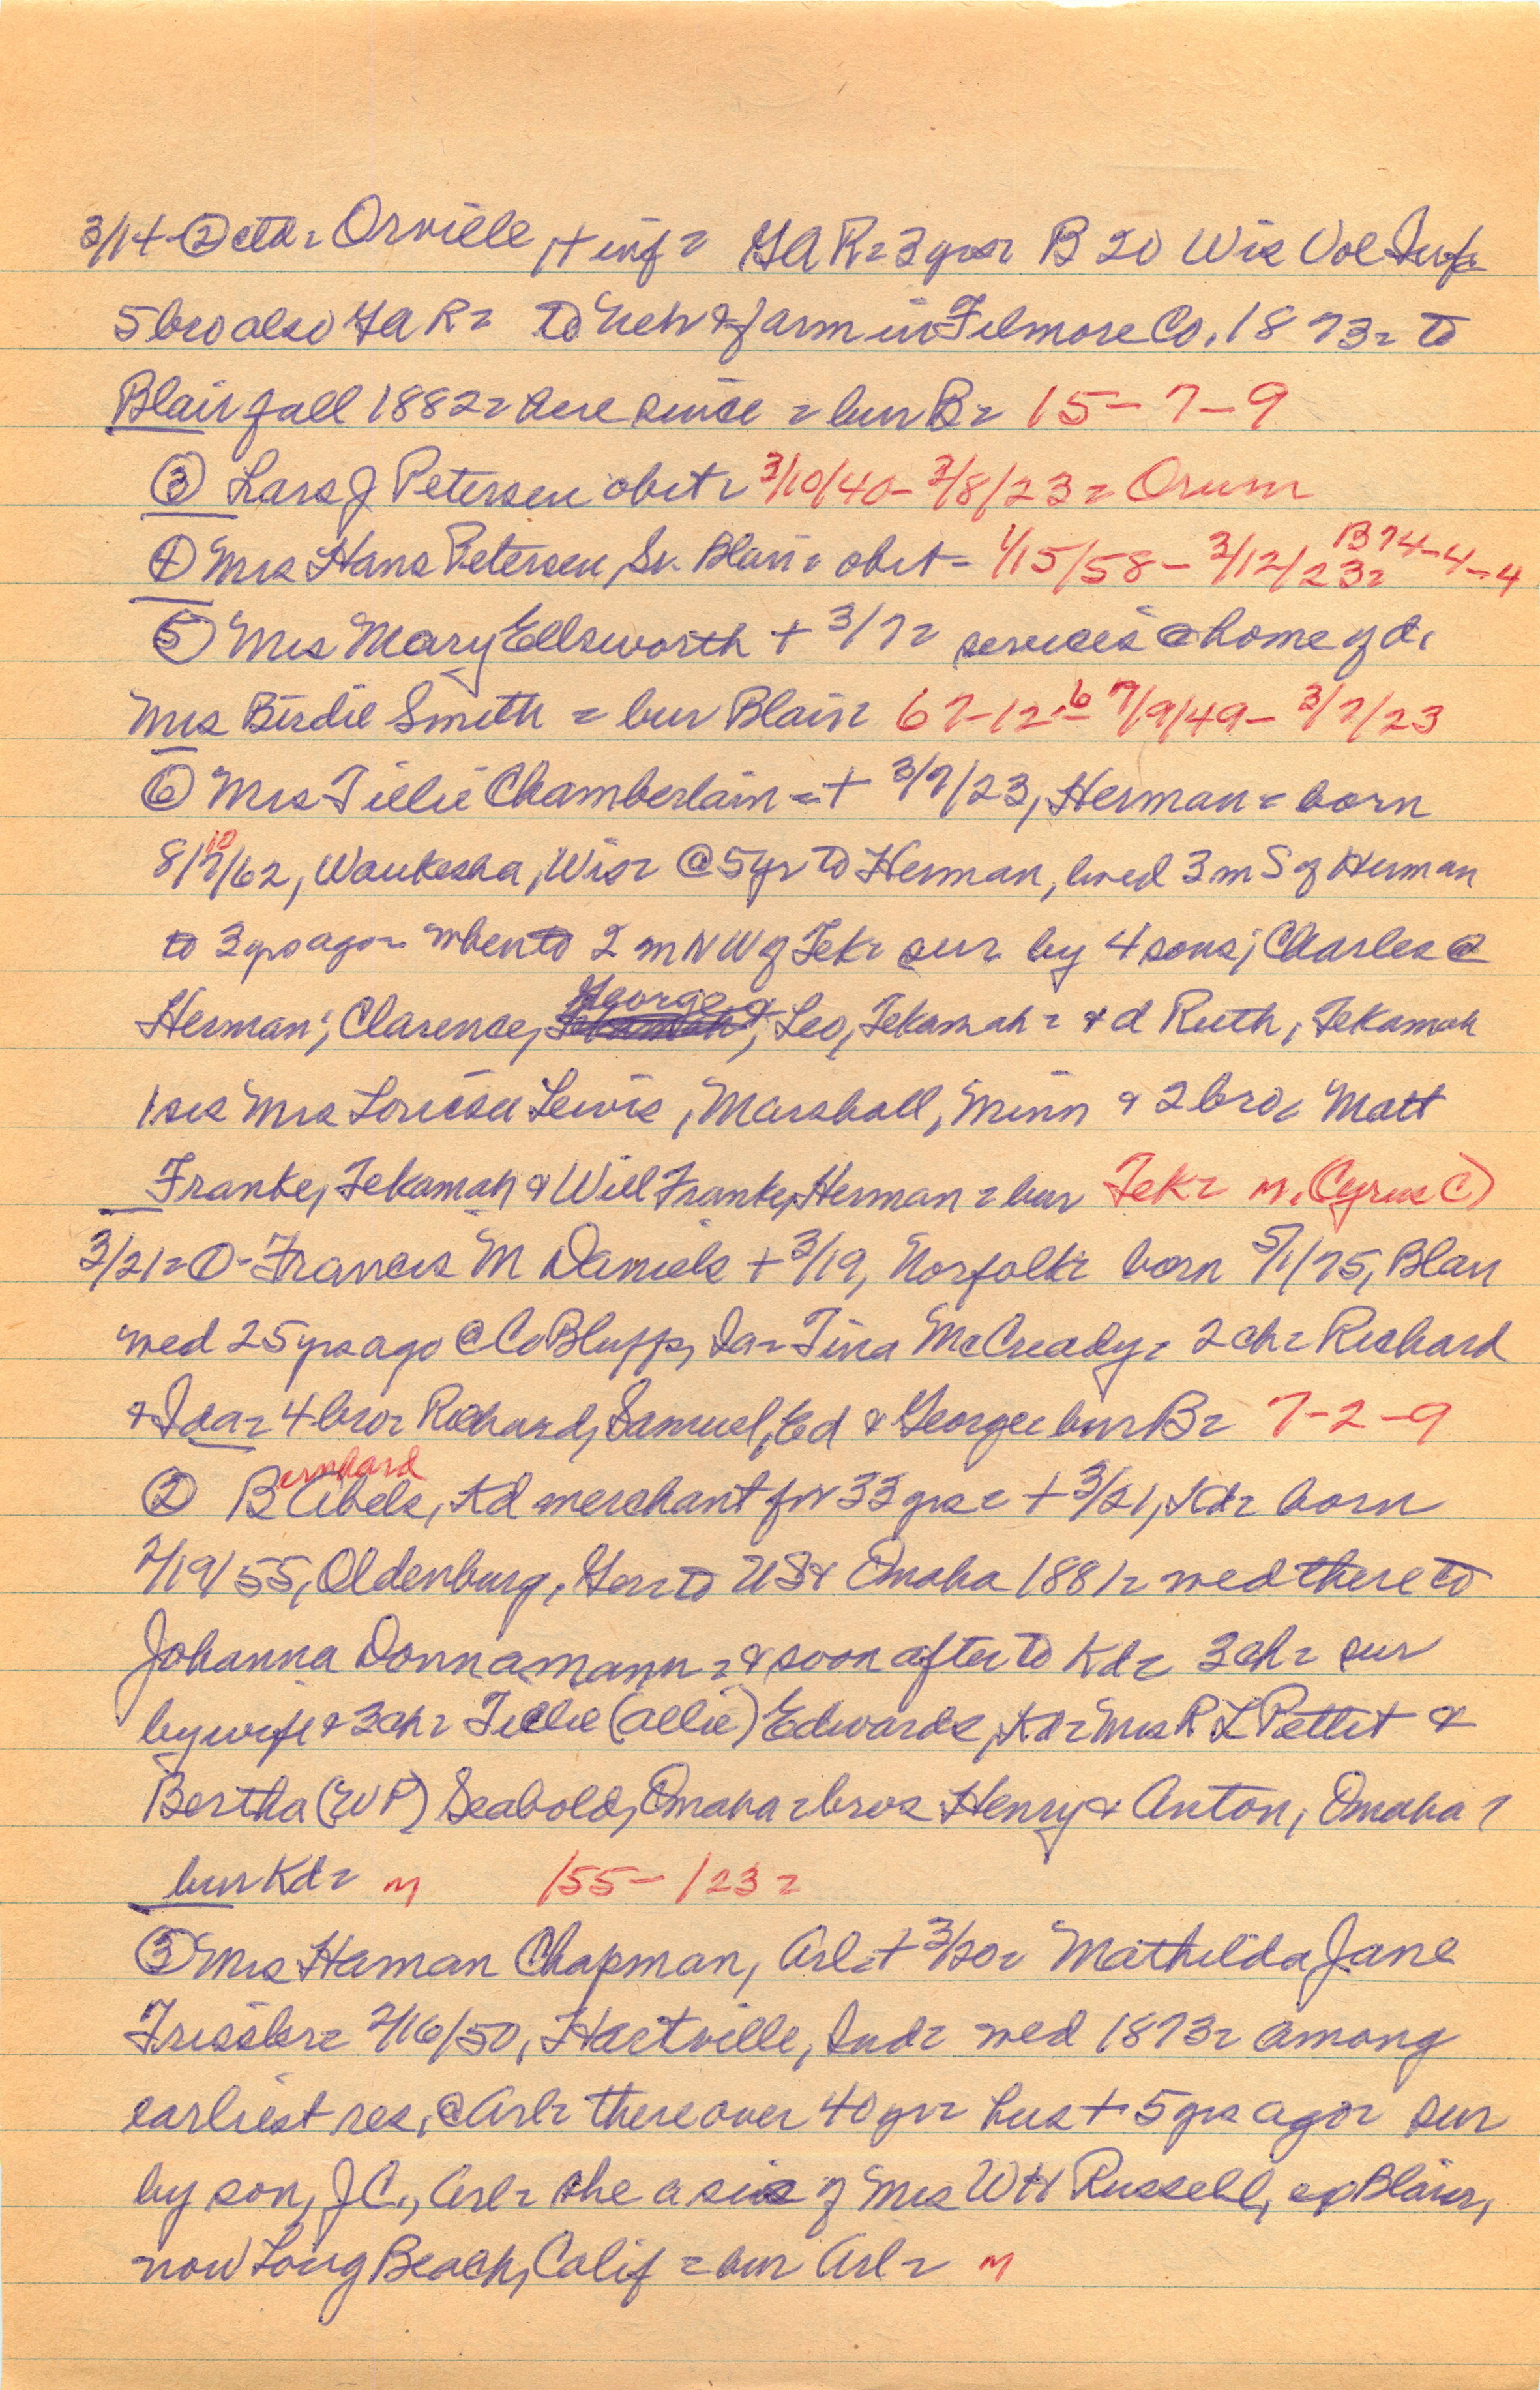 3/14-② ctd= Orville, + inf= GAR= 3 yrs= B 20 Wis Vol Inf=
5 bro also GAR= to Neb & farm in Filmore Co, 1873= to
Blair fall 1882= here since = bur B= 15-7-9
③ Lars J Petersen obit= 3/10/40- 3/8/23= Orum=
④ Mrs Hans Petersen, Sr. Blair= obit- 1/15/58- 3/12/23= B 74-4-4
⑤ Mrs Mary Ellsworth + 3/7= services @ home of d,
Mrs Birdie Smith = bur Blair= 67-12-6 7/9/49- 3/7/23
⑥ Mrs Tillie Chamberlain = + 3/7/23, Herman = born
8/7/62, 10 Waukesha, Wis= @ 5 yr to Herman, lived 3 m S of Herman
to 3 yrs ago= when to 2 m NW of Tek= sur by 4 sons; Charles @
Herman; Clarence, George &, Leo, Tekamah= & d Ruth, Tekamah
1 sis Mrs Lewis, Marshall, Minn & 2 bro, Matt
Franke, Tekamah & Will Franke, Herman = bur Tek= m. (Cyrus C)
3/21= ① - Francis M Daniels + 3/19, Norfolk= born 5/1/75, Blair
wed 25 yrs ago @ Co Bluffs, Ia= Tina McCready= 2 ch= Richard
& Ida= 4 bro= Richard, Samuel, Ed & George= bur B= 7-2-9
② Bernhard Abels, Kd merchant for 33 yrs= + 3/21, Kd= born
2/19/55, Oldenburg, Ger= to US & Omaha 1881= wed there to
Johanna Donnamann= & soon after to Kd= 3 ch= sur
by wife & 3 ch= Tillie (Allie) Edwards, Kd= Mrs R L Pettit &
Bertha (W P) Seabold, Omaha= bros Henry & Anton, Omaha=
bur Kd= m 155- 123=
③ Mrs Haman Chapman, Arl= + 3/20= Mathilda Jane
2/16/50, Hartville, Ind= wed 1873= among
earliest res, @ Arl= there over 40 yr= hus + 5 yrs ago= sur
by son, J C, Arl= she a sis of Mrs W H Russell, exp Blair,
now Long Beach, Calif = bur Arl= m